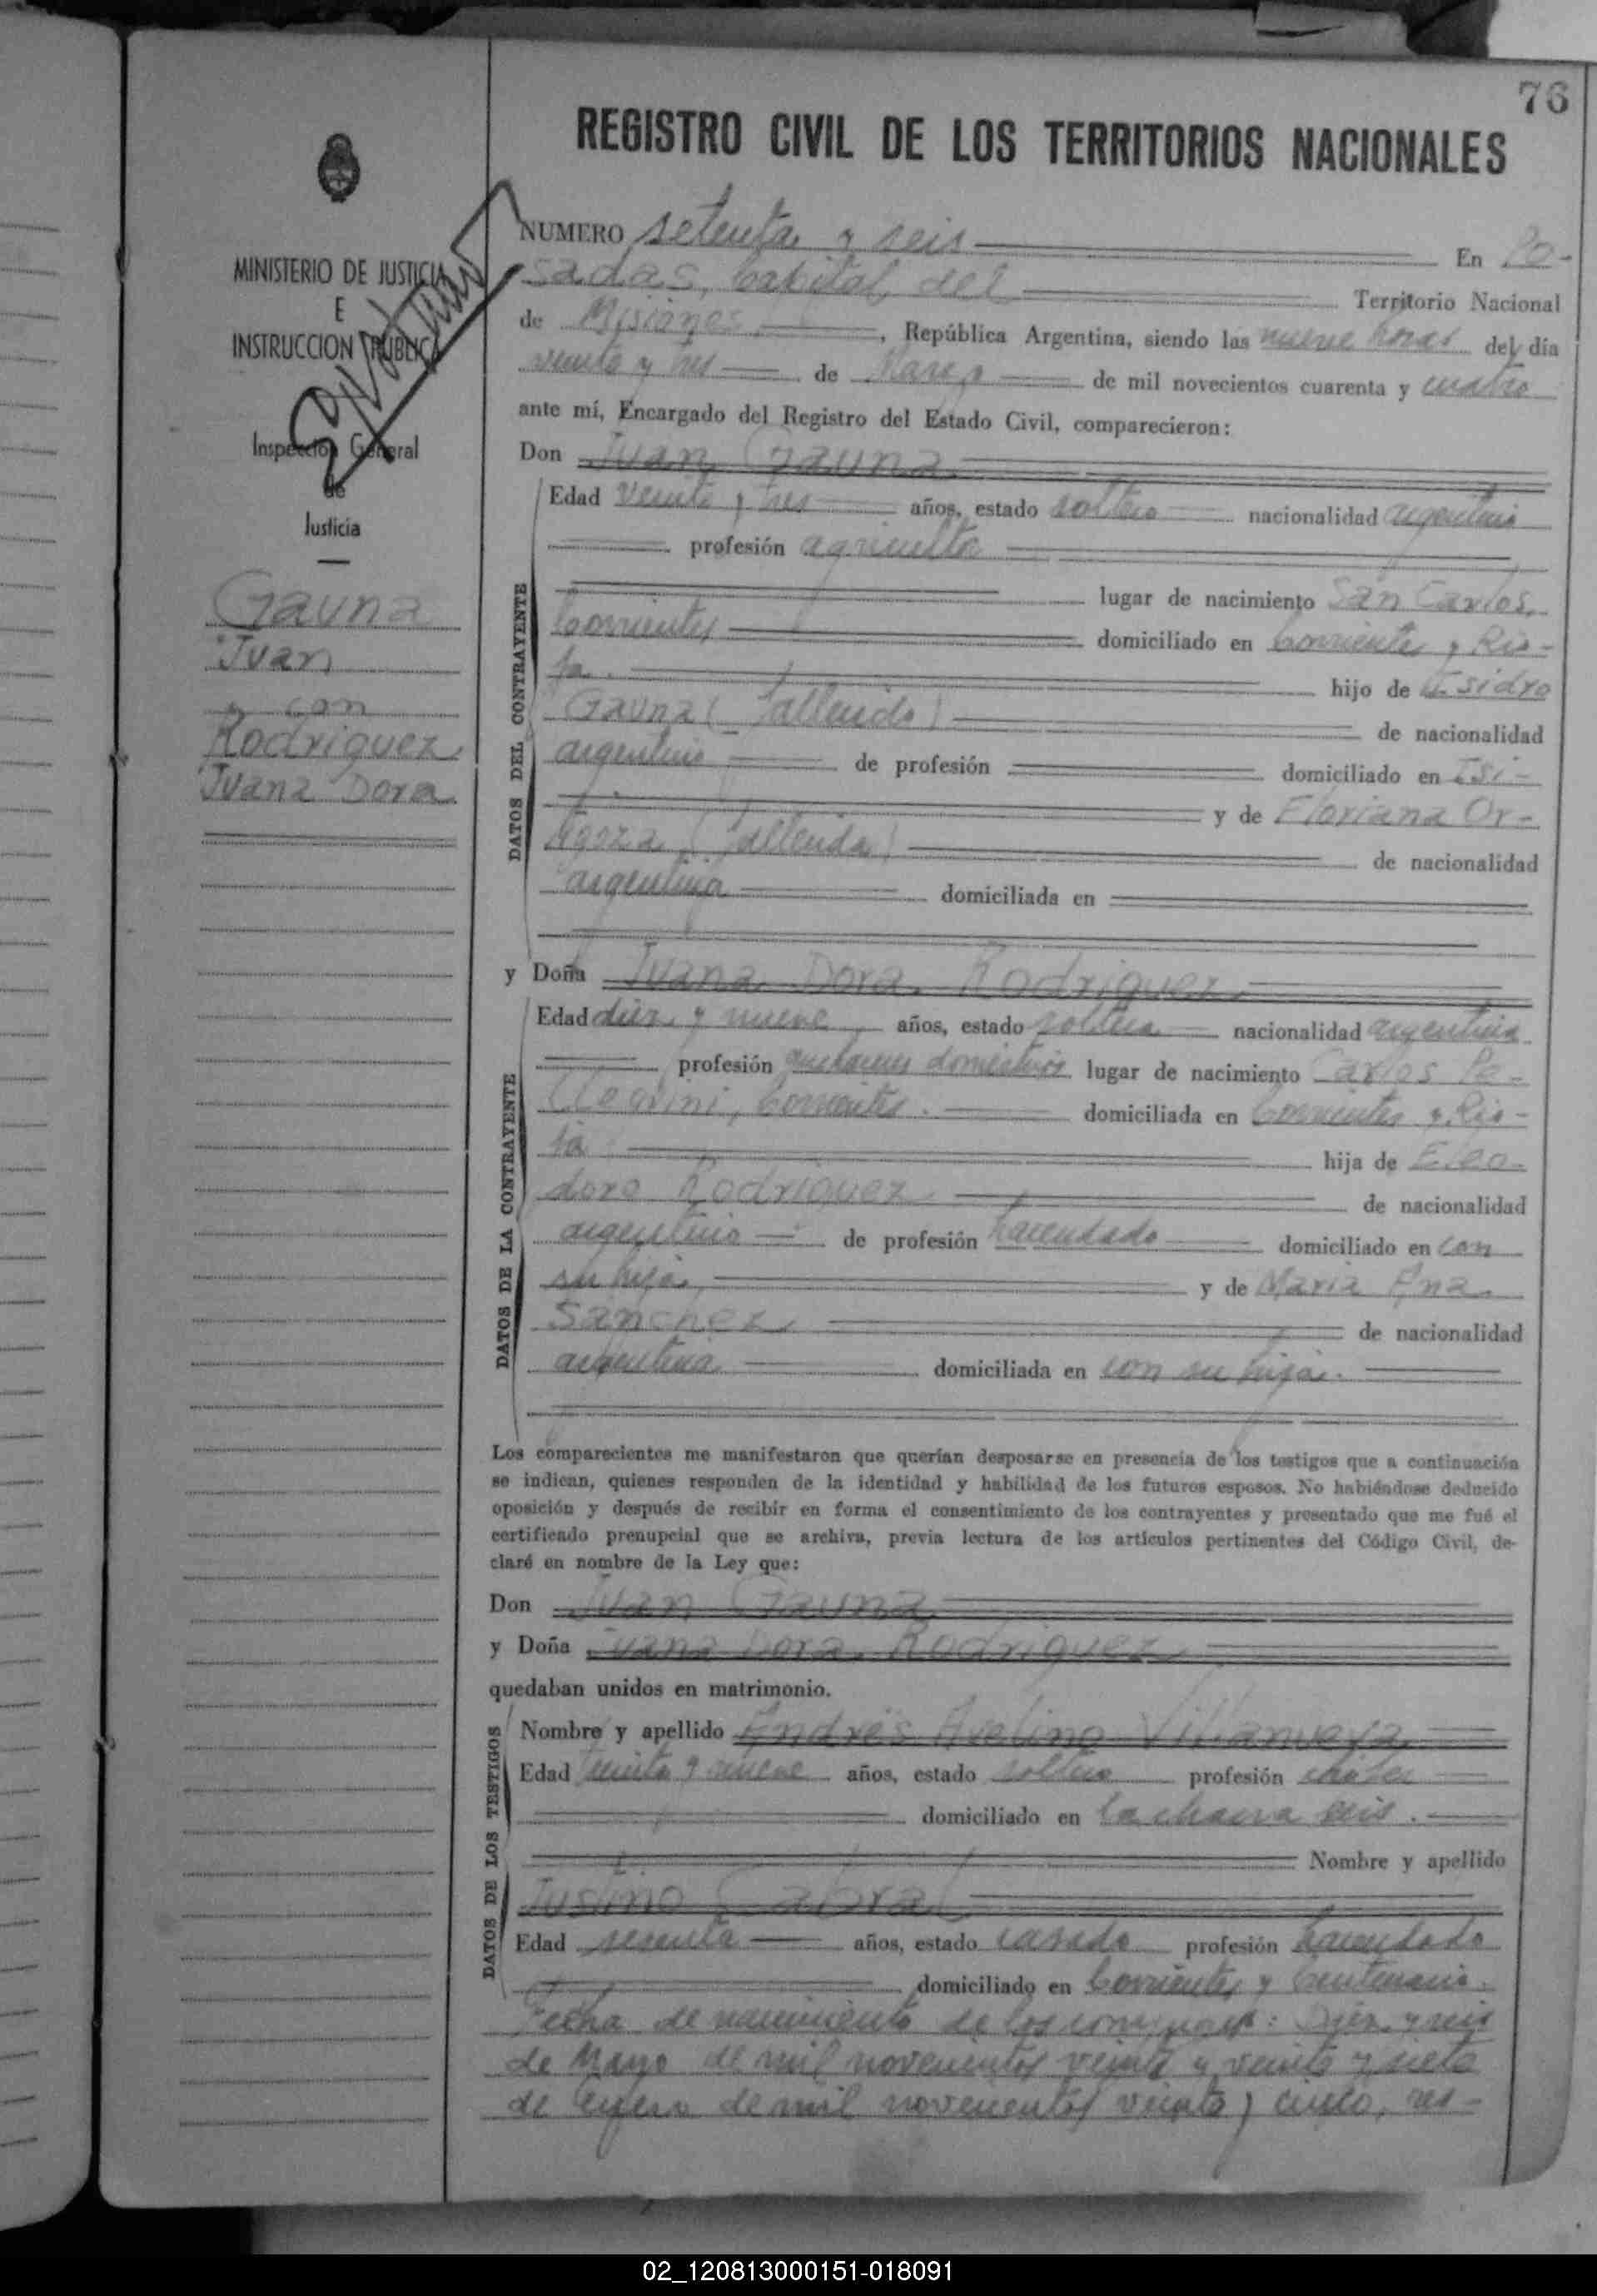 76
REGISTRO CIVIL DE LOS TERRITORIOS NACIONALES
MINISTERIO DE JUSTICIA
E
INSTRUCCION PUBLICA
Inspección General
de
Justicia
Gauna
Juan
y con
Rodriguez
Juana Dora
NUMERO setenta y seis En Po-
sadas, Capital del Territorio Nacional
de Misiones, República Argentina, siendo las nueve horas del día
veinte y tres de Marzo de mil novecientos cuarenta y cuatro
ante mí, Encargado del Registro del Estado Civil, comparecieron:
Don Juan Gauna
DATOS DEL CONTRAYENTE
Edad veinte y tres años, estado soltero nacionalidad argentino
profesión agricultor
lugar de nacimiento San Carlos,
Corrientes domiciliado en Corrientes y Rio-
ja. hijo de Isidro
Gauna (fallecido) de nacionalidad
argentino de profesión domiciliado en
y de Floriana Or-
(fallecida) de nacionalidad
argentina domiciliada en
y Doña Juana Dora Rodriguez
DATOS DE LA CONTRAYENTE
Edad diez y nueve años, estado soltera nacionalidad argentina
profesión quehaceres domesticos lugar de nacimiento Carlos Pe-
llegrini, Corrientes. domiciliada en Corrientes y Rio-
ja hija de Eleo-
doro Rodriguez de nacionalidad
argentino de profesión hacendado domiciliado en con
su hija, y de Maria Ana
Sanchez de nacionalidad
argentina domiciliada en con su hija.
Los comparecientes me manifestaron que querían desposarse en presencia de los testigos que a continuación
se indican, quienes responden de la identidad y habilidad de los futuros esposos. No habiéndose deducido
oposición y después de recibir en forma el consentimiento de los contrayentes y presentado que me fué el
certificado prenupcial que se archiva, previa lectura de los artículos pertinentes del Código Civil, de-
claré en nombre de la Ley que:
Don Juan Gauna
y Doña Juana Dora Rodriguez
quedaban unidos en matrimonio.
DATOS DE LOS TESTIGOS
Nombre y apellido Andrés Avelino Villanueva
Edad treinta y nueve años, estado soltero profesión chofer
domiciliado en la chacra seis.
Nombre y apellido
Justino Cabral
Edad sesenta años, estado casado profesión hacendado
domiciliado en Corrientes y Centenario.
Fecha de nacimiento de los conyuges: Diez y seis
de Mayo de mil novecientos veinte y veinte y siete
de Enero de mil novecientos veinte y cinco, res-
02_120813000151-018091